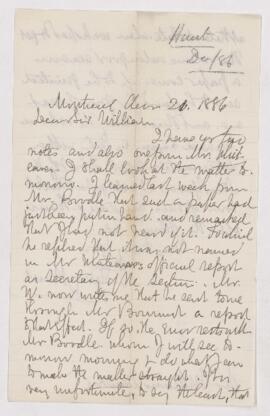 Hunt
Dec/86
Montreal Decr 21. 1886
Dear Sir William
I have yr two
notes and also one from Mr.
I shall look at the matter to
morrow. I learned last week from
Mr. that such a paper had
put in hand. and remarked
that I had not heard of it. To which
he replied that it was not named
in Mr official report
as Secretary of the Section. Mr.
W. now writes me that he sent to me
through Mr a report
to that effect. If so, the error rests with
Mr. whom I will see to
morrow morning & do what I can
to make the matter straight. It is
very unfortunate, to say the least, that